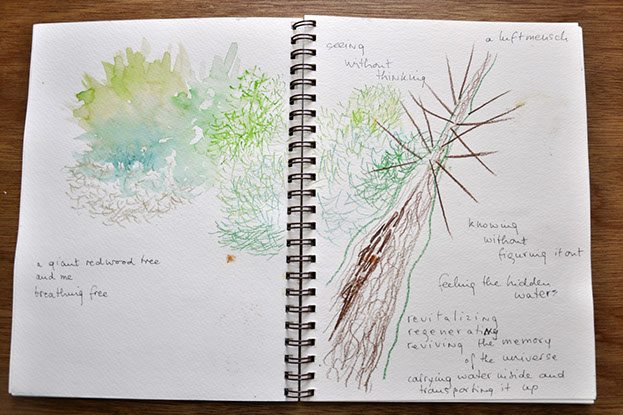 a giant redwood tree
and me
breathing free
seeing
without
thinking
a luftmensch
knowing
without
figuring it out
feeling the hidden
waters
revitalizing
regenerating
reviving the memory
of the universe
carrying water inside and
transporting it up